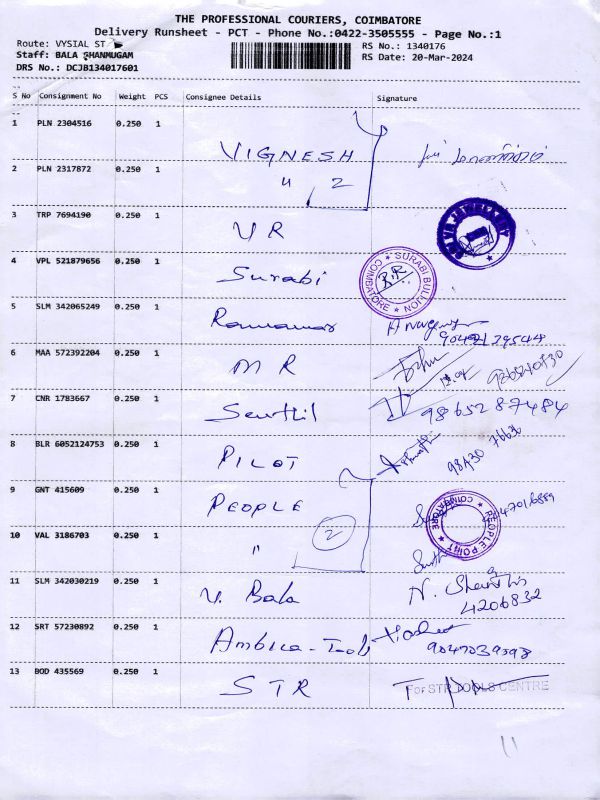 THE PROFESSIONAL COURIERS, COIMBATORE
Delivery Runsheet - PCT - Phone No.:0422-3505555 - Page No.:1
Route: VYSIAL ST
Staff: BALA SHANMUGAM
DRS No.: DCJB134017601
RS No.: 1340176
RS Date: 20-Mar-2024
S No Consignment No Weight PCS Consignee Details Signature
1 PLN 2304516 0.250 1 VIGNESH
2 PLN 2317872 0.250 1 " 2
3 TRP 7694190 0.250 1 VR
4 VPL 521879656 0.250 1 Surabi SURABI BULLION COIMBATORE
5 SLM 342065249 0.250 1
6 MAA 572392204 0.250 1 MR
7 CNR 1783667 0.250 1 Senthil 9865287484
8 BLR 6052124753 0.250 1 PILOT
9 GNT 415609 0.250 1 PEOPLE 2 PEOPLE POINT COIMBATORE
10 VAL 3186703 0.250 1 "
11 SLM 342030219 0.250 1 V. Bala N.
4206832
12 SRT 57230892 0.250 1 Ambica-Tools
9047039598
13 BOD 435569 0.250 1 STR For STR TOOLS CENTRE
11